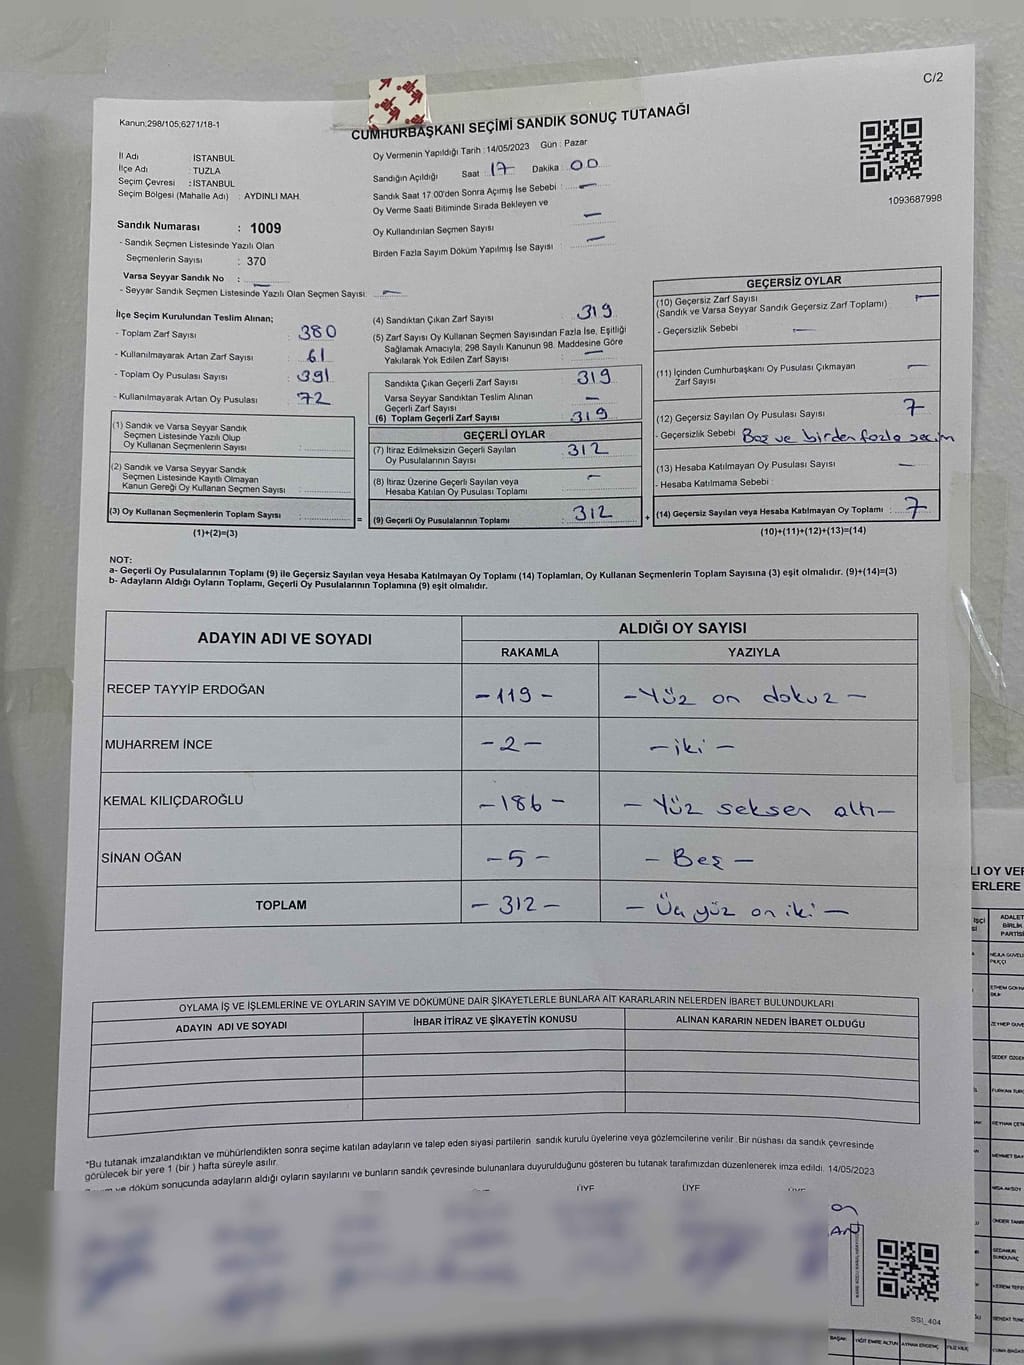 C/2
Kanun;298/105;6271/18-1
CUMHURBAŞKANI SEÇİMİ SANDIK SONUÇ TUTANAĞI
İl Adı : İSTANBUL
İlçe Adı : TUZLA
Seçim Çevresi : İSTANBUL
Seçim Bölgesi (Mahalle Adı) : AYDINLI MAH.
Oy Vermenin Yapıldığı Tarih : 14/05/2023 Gün : Pazar
Sandığın Açıldığı Saat : 17 Dakika : 00
Sandık Saat 17.00'den Sonra Açımış İse Sebebi : —
Oy Verme Saati Bitiminde Sırada Bekleyen ve
Oy Kullandırılan Seçmen Sayısı —
Birden Fazla Sayım Döküm Yapılmış İse Sayısı : —
1093687998
Sandık Numarası : 1009
- Sandık Seçmen Listesinde Yazılı Olan
Seçmenlerin Sayısı : 370
Varsa Seyyar Sandık No : —
- Seyyar Sandık Seçmen Listesinde Yazılı Olan Seçmen Sayısı: —
İlçe Seçim Kurulundan Teslim Alınan;
- Toplam Zarf Sayısı : 380
- Kullanılmayarak Artan Zarf Sayısı : 61
- Toplam Oy Pusulası Sayısı : 391
- Kullanılmayarak Artan Oy Pusulası : 72
(1) Sandık ve Varsa Seyyar Sandık
Seçmen Listesinde Yazılı Olup
Oy Kullanan Seçmenlerin Sayısı :
(2) Sandık ve Varsa Seyyar Sandık
Seçmen Listesinde Kayıtlı Olmayan
Kanun Gereği Oy Kullanan Seçmen Sayısı :
(3) Oy Kullanan Seçmenlerin Toplam Sayısı : =
(1)+(2)=(3)
(4) Sandıktan Çıkan Zarf Sayısı : 319
(5) Zarf Sayısı Oy Kullanan Seçmen Sayısından Fazla İse, Eşitliği
Sağlamak Amacıyla, 298 Sayılı Kanunun 98. Maddesine Göre
Yakılarak Yok Edilen Zarf Sayısı : —
Sandıkta Çıkan Geçerli Zarf Sayısı : 319
Varsa Seyyar Sandıktan Teslim Alınan
Geçerli Zarf Sayısı : —
(6) Toplam Geçerli Zarf Sayısı : 319
GEÇERLİ OYLAR
(7) İtiraz Edilmeksizin Geçerli Sayılan
Oy Pusulalarının Sayısı : 312
(8) İtiraz Üzerine Geçerli Sayılan veya
Hesaba Katılan Oy Pusulası Toplamı : —
(9) Geçerli Oy Pusulalarının Toplamı : 312 +
GEÇERSİZ OYLAR
(10) Geçersiz Zarf Sayısı
(Sandık ve Varsa Seyyar Sandık Geçersiz Zarf Toplamı) : —
- Geçersizlik Sebebi : —
(11) İçinden Cumhurbaşkanı Oy Pusulası Çıkmayan
Zarf Sayısı : —
(12) Geçersiz Sayılan Oy Pusulası Sayısı : 7
- Geçersizlik Sebebi : Boş ve birden fazla seçim
(13) Hesaba Katılmayan Oy Pusulası Sayısı : —
- Hesaba Katılmama Sebebi :
(14) Geçersiz Sayılan veya Hesaba Katılmayan Oy Toplamı : 7
(10)+(11)+(12)+(13)=(14)
NOT:
a- Geçerli Oy Pusulalarının Toplamı (9) ile Geçersiz Sayılan veya Hesaba Katılmayan Oy Toplamı (14) Toplamları, Oy Kullanan Seçmenlerin Toplam Sayısına (3) eşit olmalıdır. (9)+(14)=(3)
b- Adayların Aldığı Oyların Toplamı, Geçerli Oy Pusulalarının Toplamına (9) eşit olmalıdır.
ADAYIN ADI VE SOYADI
ALDIĞI OY SAYISI
RAKAMLA YAZIYLA
RECEP TAYYİP ERDOĞAN -119- -Yüz on dokuz-
MUHARREM İNCE -2- -iki-
KEMAL KILIÇDAROĞLU -186- -Yüz seksen altı-
SİNAN OĞAN -5- -Beş-
TOPLAM -312- -Üç yüz on iki-
OYLAMA İŞ VE İŞLEMLERİNE VE OYLARIN SAYIM VE DÖKÜMÜNE DAİR ŞİKAYETLERLE BUNLARA AİT KARARLARIN NELERDEN İBARET BULUNDUKLARI
ADAYIN ADI VE SOYADI İHBAR İTİRAZ VE ŞİKAYETİN KONUSU ALINAN KARARIN NEDEN İBARET OLDUĞU
*Bu tutanak imzalandıktan ve mühürlendikten sonra seçime katılan adayların ve talep eden siyasi partilerin sandık kurulu üyelerine veya gözlemcilerine verilir. Bir nüshası da sandık çevresinde
görülecek bir yere 1 (bir) hafta süreyle asılır.
ve döküm sonucunda adayların aldığı oyların sayılarını ve bunların sandık çevresinde bulunanlara duyurulduğunu gösteren bu tutanak tarafımızdan düzenlenerek imza edildi. 14/05/2023
ÜYE ÜYE
SSİ_404
LI OY VER
ERLERE
ADALET
BİRLİK
PARTİSİ